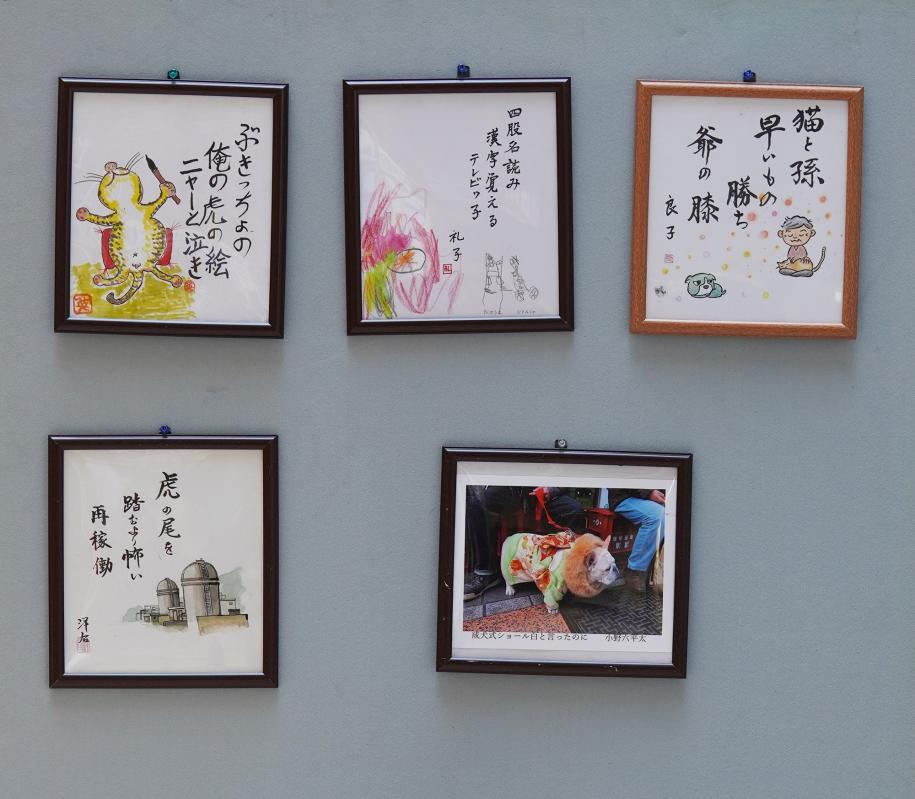 ぶきっちょの
俺の虎の絵
ニャーと泣き
四股名読み
漢字覚える
テレビッ子
礼子
猫と孫
早いもの
勝ち
爺の膝
良子
虎の尾を
踏むより怖い
再稼働
洋右
成犬式ショール白と言ったのに 小野六平太